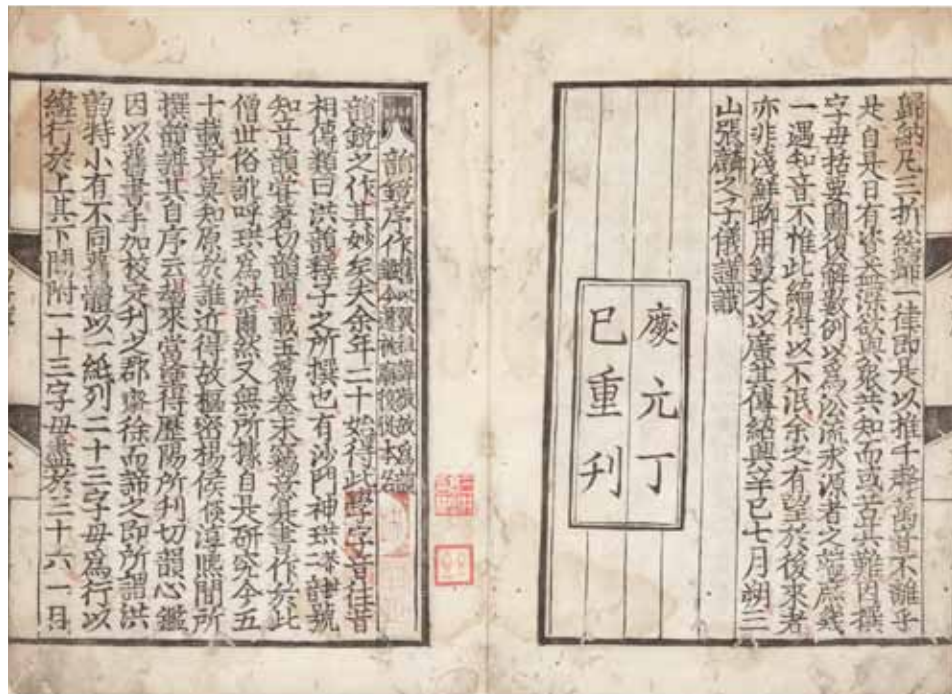 歸納凡三折總歸一律即是以推千聲萬音不離乎
是自是日有資益深欲與衆共知而或苦其難因撰
字母括要圖復解數例以爲沿流求源者之端庶幾
一遇知音不惟此編得以不泯余之有望於後來者
亦非淺鮮聊用鋟木以廣其傳紹興辛巳七月朔三
山張麟之子儀謹識
慶元丁
巳重刊
韻鏡序作 舊以翼祖諱敬故爲韻鑑今遷祧廟復從本名
韻鏡之作其妙矣夫余年二十始得此學字音往昔
相傳類曰洪韻釋子之所撰也有沙門神珙號
知音韻嘗著切韻圖載玉篇卷末竊意是書作於此
僧世俗訛呼珙爲洪爾然又無所據自是研究今五
十載竟莫知原於誰近得故樞密楊侯倓淳熙間所
撰韻譜其自序云朅來當塗得歷陽所刊切韻心鑑
因以舊書手加校定刊之郡齋徐而諦之即所謂洪
韵特小有不同舊體以一紙列二十三字母爲行以
緯行於上其下間附一十三字母盡於三十六一目